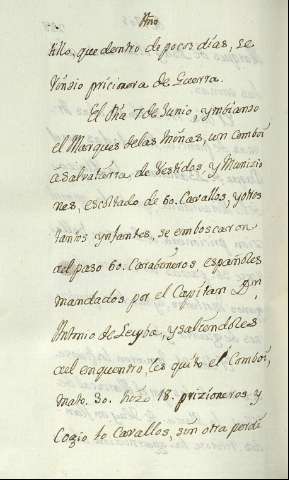 tillo, que dentro de pocos días, se
rindio pricionera de Guerra.
El día 7 de Junio, ymbiando
el Marques de las Minas, un Comboi
a Salvatierra, de Vestidos, y Munisio
nes, escoltado de 60. Cavallos, y otros
tantos ynfantes, se emboscaron
al paso 60. Carabineros españoles
mandados por el Capitan Dn.
Antonio de Leyba, y saliendoles
al enquentro, les quito el Comboi,
mato 30. hizo 18. prizioneros y
Cogio 40 Cavallos, sin otra perdi